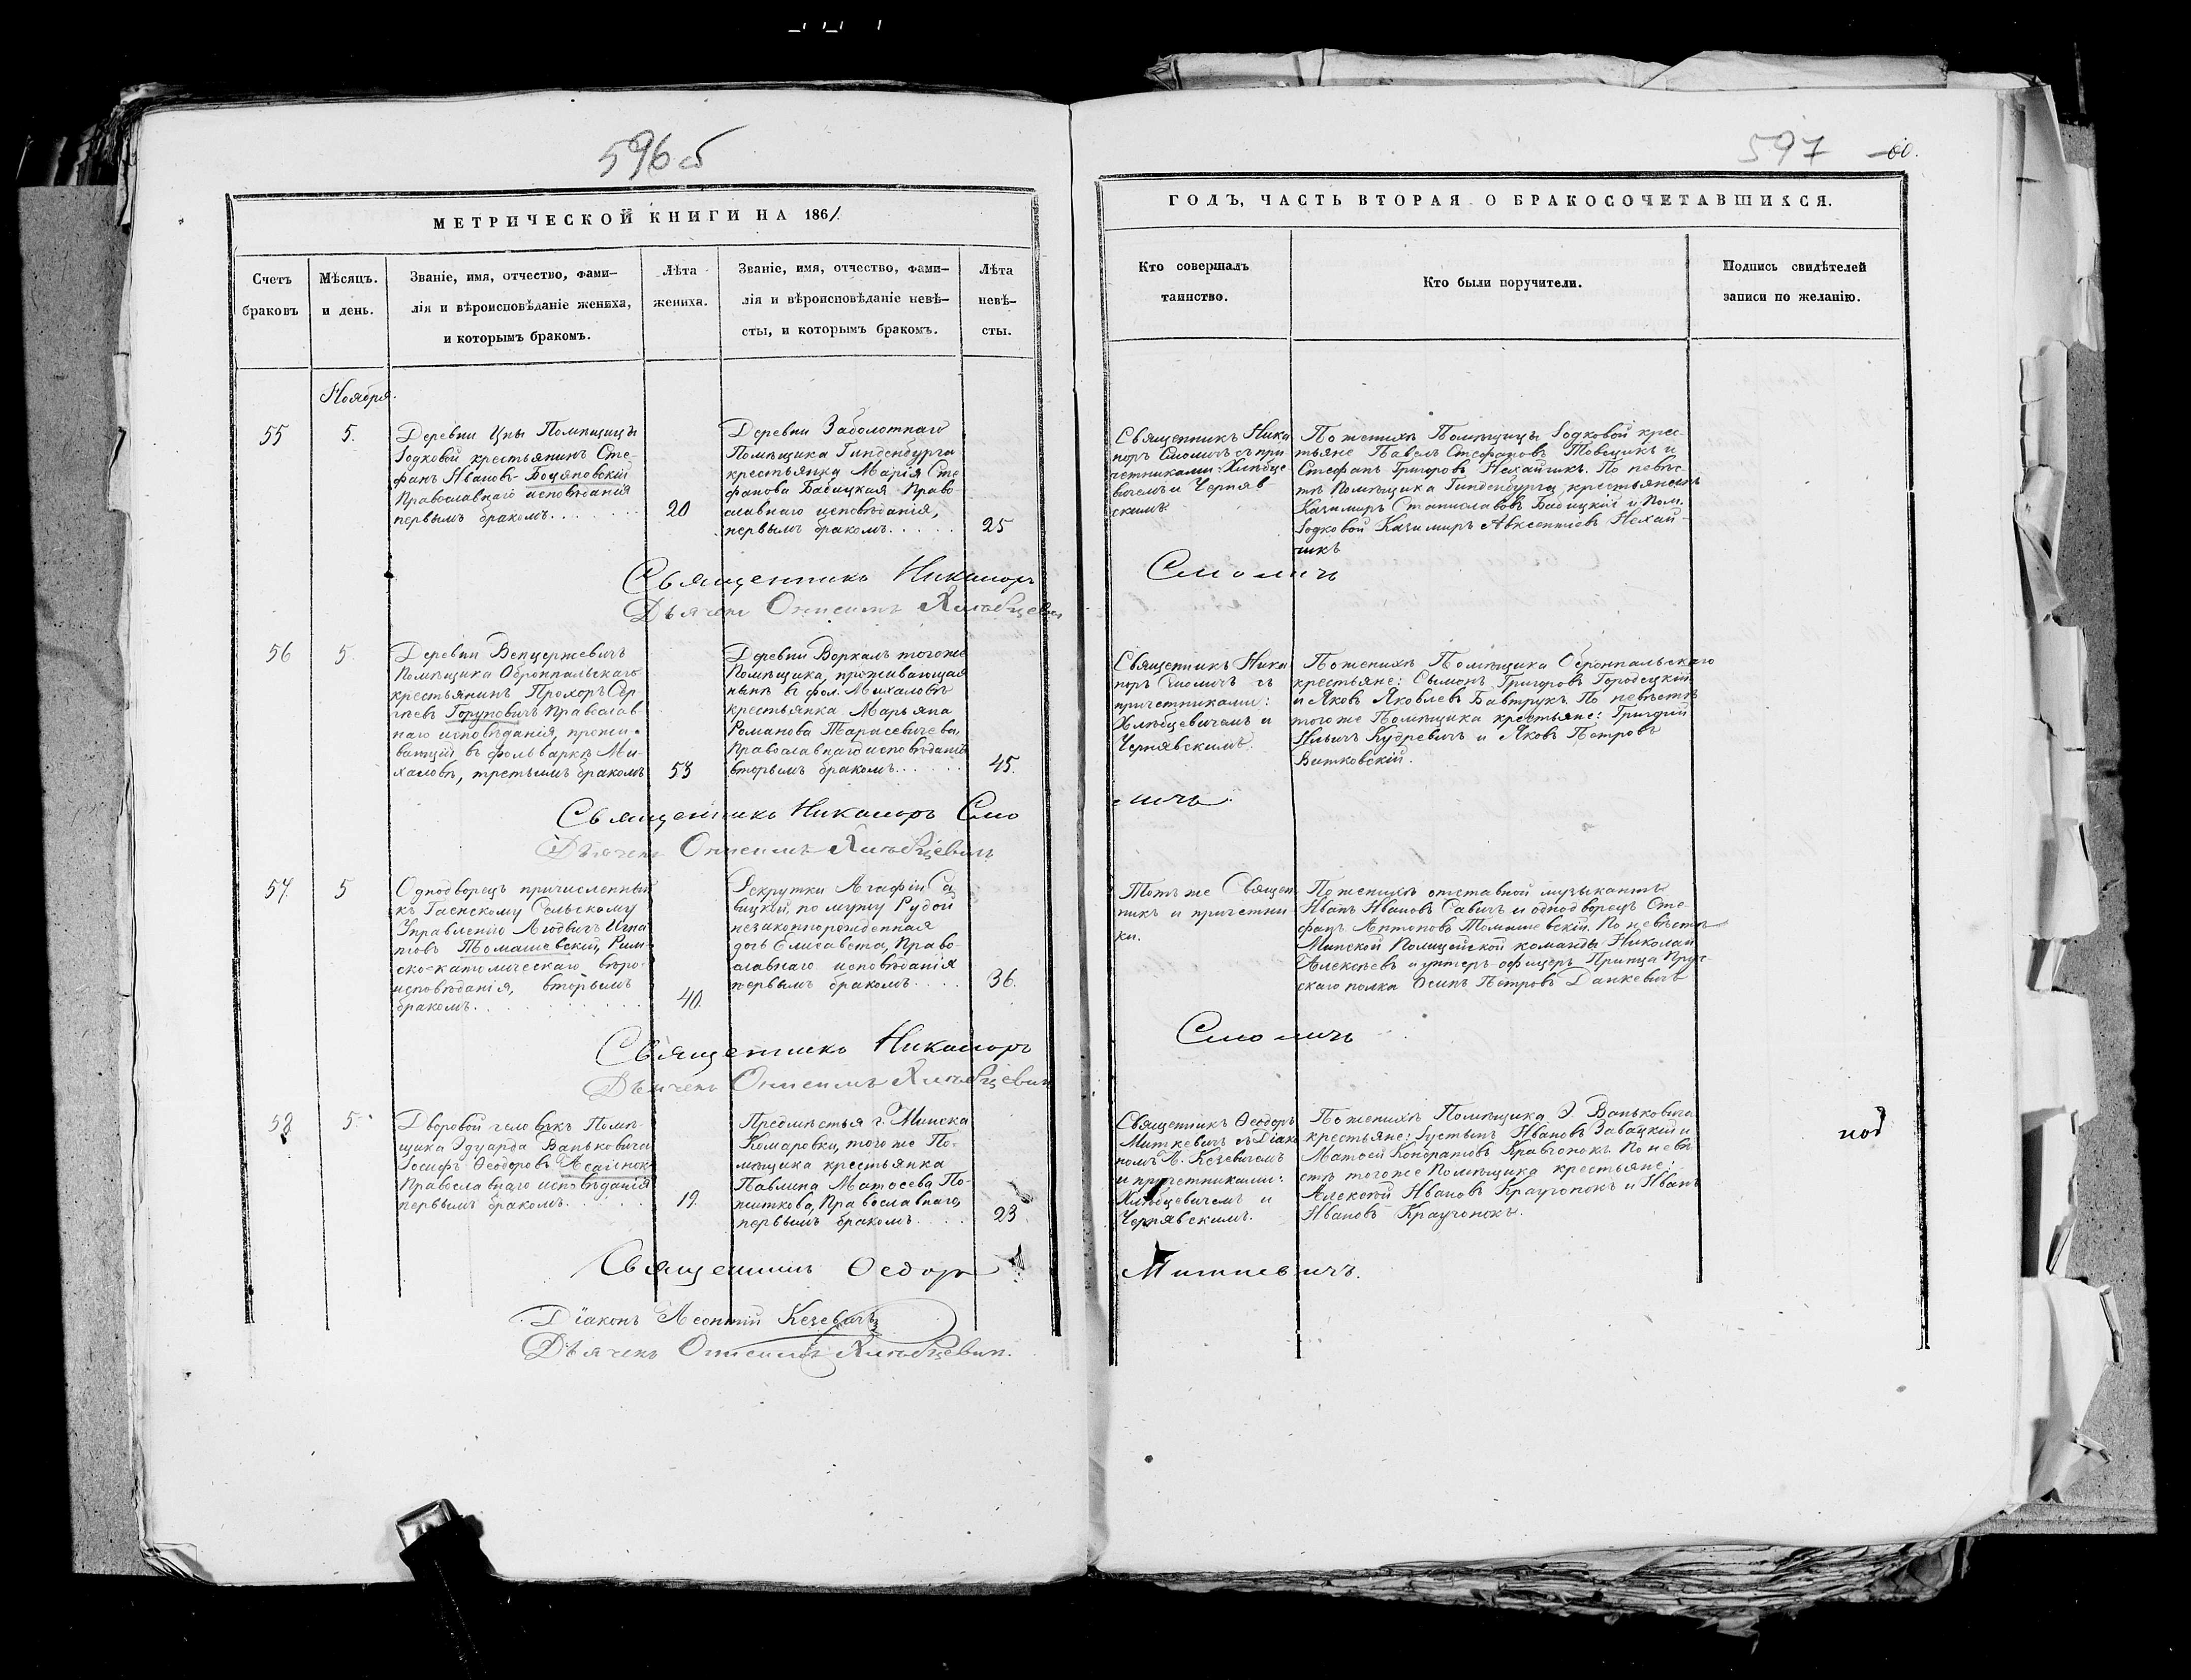 596 об
597
60.
МЕТРИЧЕСКОЙ КНИГИ НА 1861
ГОДЪ, ЧАСТЬ ВТОРАЯ О БРАКОСОЧЕТАВШИХСЯ.
Счетъ
браковъ
Мѣсяцъ.
и день.
Званіе, имя, отчество, фами-
лія и вѣроисповѣданіе жениха,
и которымъ бракомъ.
Лѣта
жениха.
Званіе, имя, отчество, фами-
лія и вѣроисповѣданіе невѣ-
сты, и которымъ бракомъ.
Лѣта
невѣ-
сты.
Кто совершалъ
таинство.
Кто были поручители.
Подпись свидѣтелей
записи по желанію.
Ноября.
55
5.
Деревни Цны Помѣщицы
крестьянинъ Сте-
фанъ Ивановъ Боцяновскій
Православнаго исповѣданія
первымъ бракомъ
20
Деревни Заболотнаго
Помѣщика Гинденбурга
крестьянка Марія Сте
фанова Бабицкая Право-
славнаго исповѣданія,
первымъ бракомъ
25
Священникъ Ника
норъ Смоличъ съ при
четниками: Хлѣбце
вичемъ и Черняв
скимъ
По женихѣ Помѣщицы крес-
тьяне Павелъ Стефановъ Товщикъ и
Стефанъ Григоровъ Нехайчикъ. По невѣс-
тѣ Помѣщика Гинденбурга крестьянинъ
Казимиръ Станиславовъ Бабицкій и Пом.
Казимиръ Авксентіевъ Нехай-
чикъ
Священникъ Никаноръ Смоличъ
Дьячекъ Онисимъ Хлѣбцевичъ
56
5.
Деревни Венцержевичъ
Помѣщика Обромпальскаго
крестьянинъ Прохоръ Сер
гѣевъ Горуновичъ Православ
наго исповѣданія, прожи-
вающій въ фольваркѣ Ми-
халовѣ, третьимъ бракомъ
53
Деревни Воркалъ тогоже
Помѣщика, проживающая
нынѣ въ фол. Михаловѣ
крестьянка Марьяна
Романова Тарасевичева,
Православнаго исповѣданія
вторымъ бракомъ
45.
Священникъ Ника
норъ Смоличъ съ
причетниками:
Хлѣбцевичемъ и
Чернявскимъ.
По женихѣ Помѣщика Обромпальскаго
крестьяне: Сымонъ Григоровъ Городецкій
и Яковъ Яковлевъ Бавтрукъ. По невѣстѣ
тогоже Помѣщика крестьяне: Григорій
Ильичъ Кудревичъ и Яковъ Петровъ
Витковскій.
Священникъ Никаноръ Смоличъ
Дьячекъ Онисимъ Хлѣбцевичъ
57.
5
Однодворецъ причисленный
къ Гаенскому Сельскому
Управленію Людвигъ Игна
тіовъ Томашевскій, Рим-
ско-католическаго вѣро-
исповѣданія, вторымъ
бракомъ
40.
Рекрутки Агафіи Са
вицкой, по мужу Рудой
незаконнорожденная
дочь Елисавета, Право-
славнаго исповѣданія
первымъ бракомъ
36.
Тотъ же Священ
никъ и причетни
ки.
По женихѣ отставной музыкантъ
Иванъ Ивановъ Савичъ и однодворецъ Сте-
фанъ Антоновъ Томашевскій. По невѣстѣ
Минской Полицейской команды Николай
Алексѣевъ и унтеръ-офицеръ Принца Прус-
скаго полка Осипъ Петровъ Данкевичъ
Священникъ Никаноръ Смоличъ
Дьячекъ Онисимъ Хлѣбцевичъ
58
5.
Дворовой человѣкъ Помѣ-
щика Эдуарда Ваньковича
Іосифъ Ѳеодоровъ
Православнаго исповѣданія
первымъ бракомъ
19.
Предмѣстья г. Минска
Комаровки, того же По-
мѣщика крестьянка
Павлина Матѳеева По-
титкова, Православнаго,
первымъ бракомъ
23.
Священникъ Ѳеодоръ
Миткевичъ съ Діако
номъ Л. Кезевичемъ
и причетниками:
Хлѣбцевичемъ и
Чернявскимъ.
По женихѣ Помѣщика Э. Ваньковича
крестьяне: Густынъ Ивановъ Завацкій и
Матѳей Кондратовъ Кравчонокъ. По невѣ
стѣ тогоже Помѣщика крестьяне:
Алексѣй Ивановъ Краучонокъ и Иванъ
Ивановъ Краучонокъ.
Священникъ Ѳеодоръ Миткевичъ.
Діаконъ Леонтій Кезевичъ
Дьячекъ Онисимъ Хлѣбцевич.